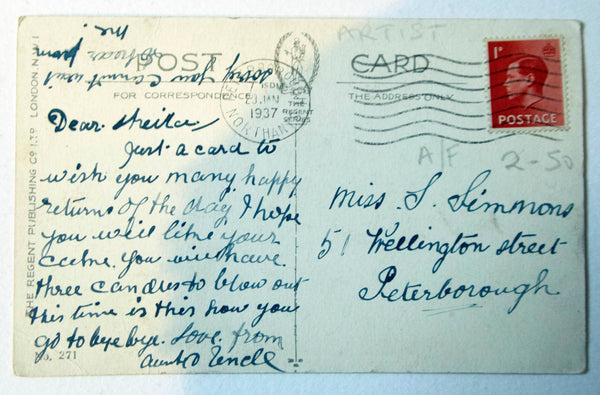 ARTIST
POST CARD
FOR CORRESPONDENCE
THE ADDRESS ONLY
THE REGENT SERIES
20 JAN
1937
NORTHAN
1D
POSTAGE
A/F
2-50
sorry you cannot
Dear Sheila
Just a card to
wish you many happy
returns of the day I hope
you will like your
cake. You will have
three candles to blow out
this time is this how you
go to bye bye. Love from
Aunt & Uncle
Miss S. Simmons
51 Wellington street
Peterborough
THE REGENT PUBLISHING CO LTD LONDON. N.W.1
No. 271